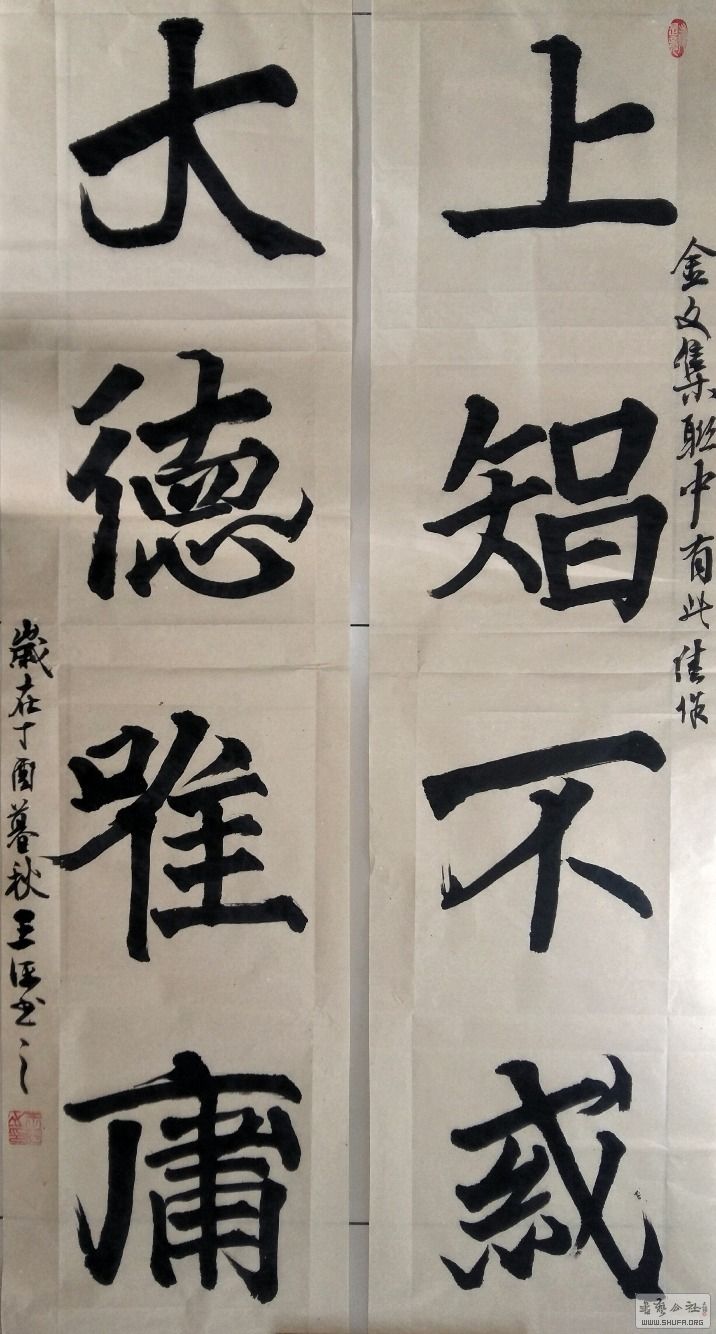 金文集联中有此佳作
上智不惑
大德唯庸
歲在丁酉暮秋王书之
书艺公社
WWW.SHUFA.ORG